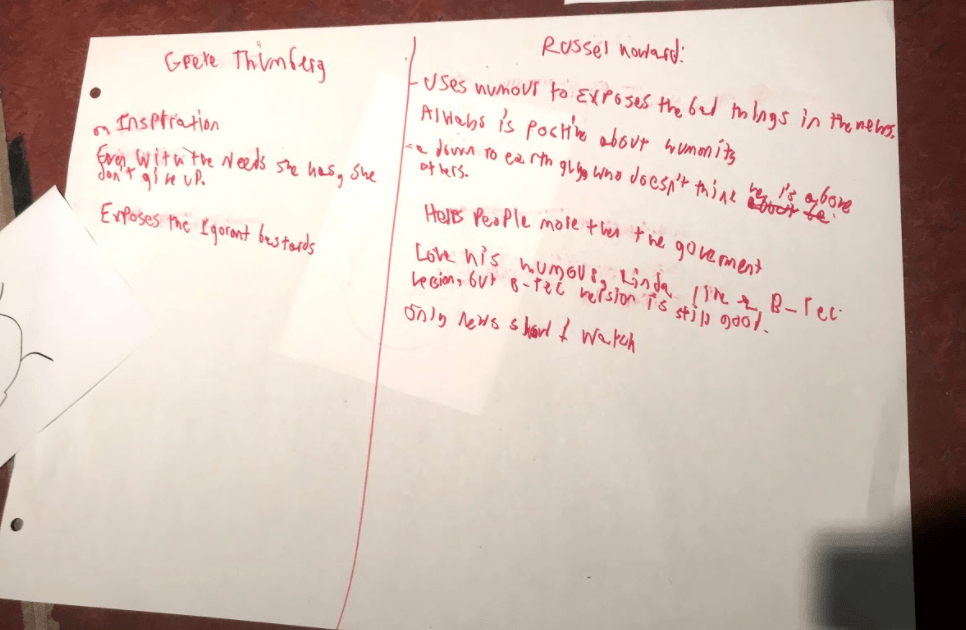 Greke Thimberg
an Insptration
Even witw the Needs she has, she
don't give up.
Exposes the Igorant bastards
Russel howard:
- Uses humour to Exposes the bad things in the news.
Always is positive about humanity
- a down to earth guy who doesn't think he is above
others.
Helps People more then the goverment
Love his humour, kinda like a B-Tec
version, but B-Tec version is still good.
only news show I watch